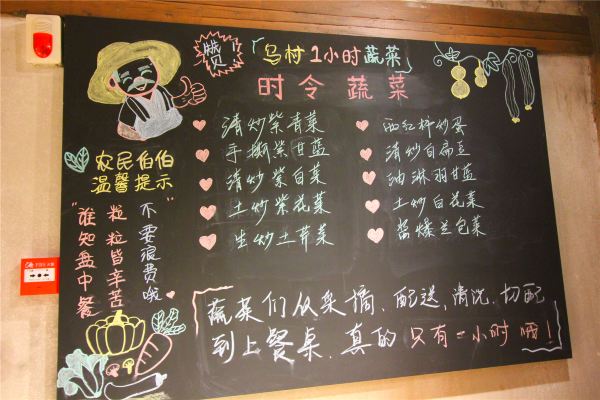 赞
「乌村1小时蔬菜」
时令蔬菜
清炒紫青菜
手撕紫甘蓝
清炒紫白菜
土炒紫花菜
生炒土芹菜
西红柿炒蛋
清炒白扁豆
油淋羽甘蓝
土炒白花菜
酱爆兰包菜
农民伯伯
温馨提示
"谁知盘中餐
粒粒皆辛苦
不要浪费哦"
蔬菜们从采摘、配送,清洗,切配
到上餐桌,真的只有一小时哦!